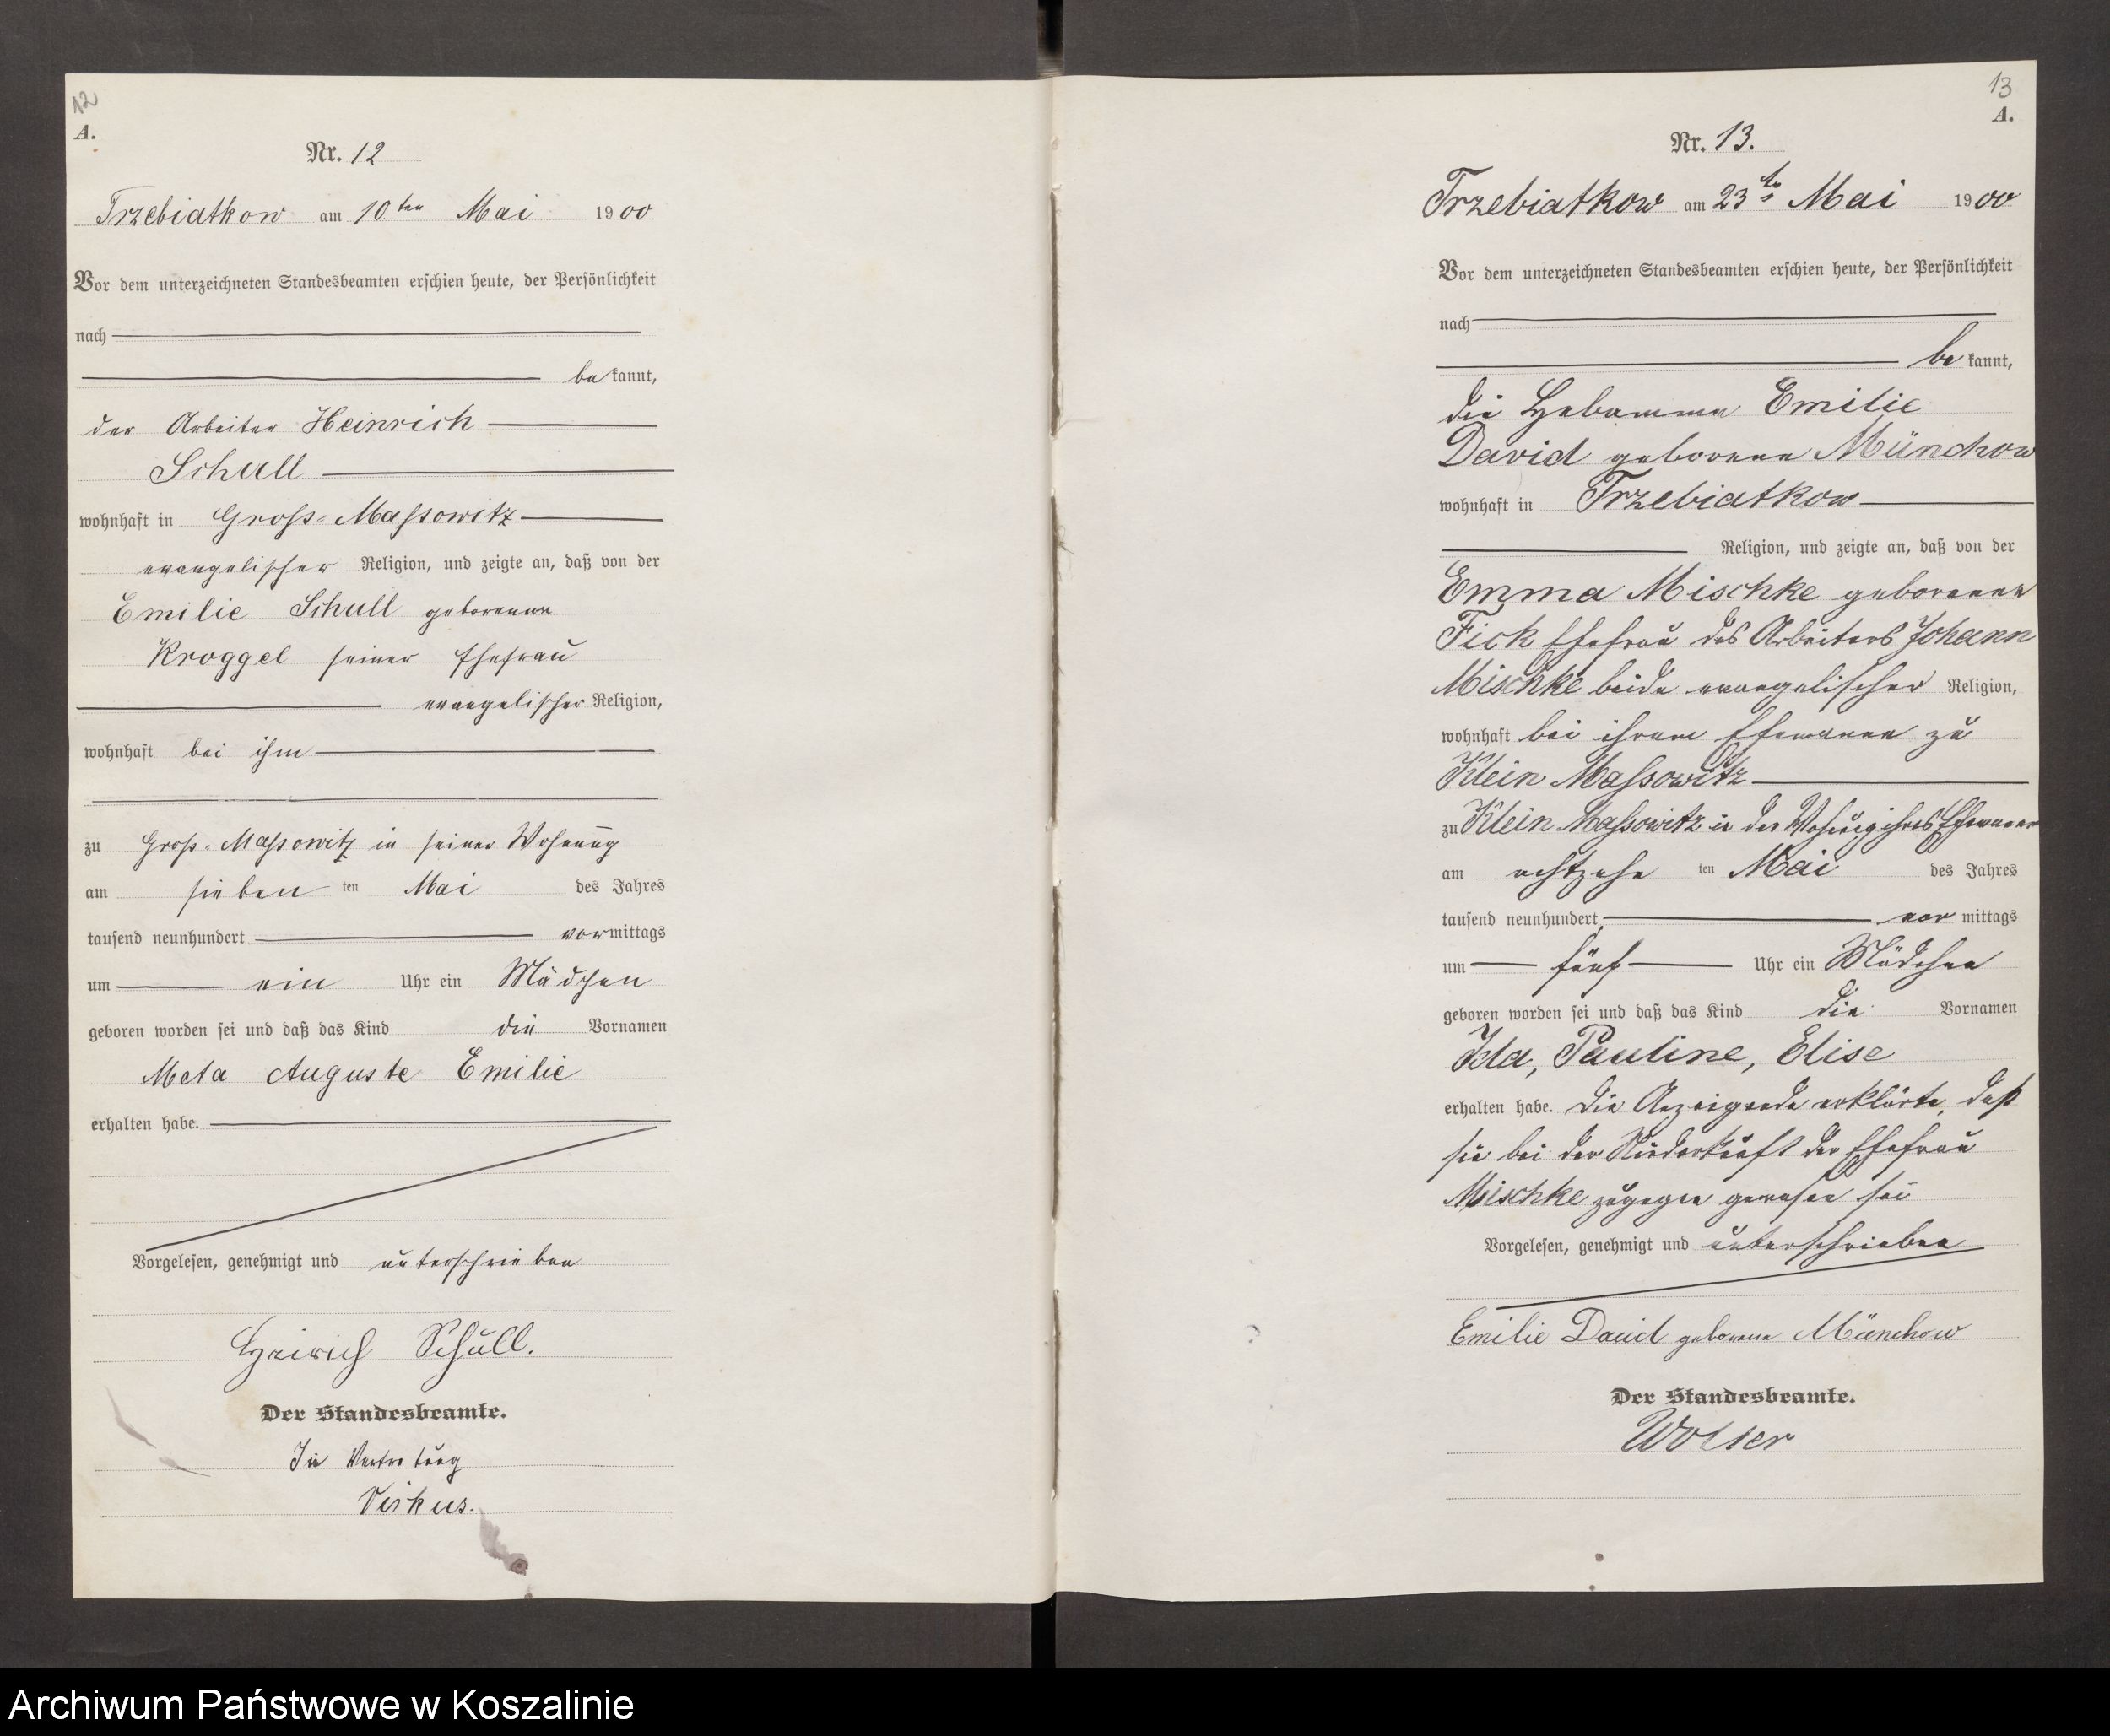 12
A.
Nr. 12
Trzebiatkow am 10ten Mai 1900
Vor dem unterzeichneten Standesbeamten erschien heute, der Persönlichkeit
nach
bekannt,
der Arbeiter Heinrich
Schull
wohnhaft in Gross-Massowitz
evangelischer Religion, und zeigte an, daß von der
Emilie Schull geborenen
Kroggel seiner Ehefrau
evangelischer Religion,
wohnhaft bei ihm
zu Gross-Massowitz in seiner Wohnung
am siebenten Mai des Jahres
tausend neunhundert vormittags
um ein Uhr ein Mädchen
geboren worden sei und daß das Kind die Vornamen
Meta Auguste Emilie
erhalten habe.
Vorgelesen, genehmigt und unterschrieben
Heinrich Schull.
Der Standesbeamte.
In Vertretung
Virkus.
13
A.
Nr. 13.
Trzebiatkow am 23ten Mai 1900
Vor dem unterzeichneten Standesbeamten erschien heute, der Persönlichkeit
nach
bekannt,
die Hebamme Emilie
David geborene Münchow
wohnhaft in Trzebiatkow
Religion, und zeigte an, daß von der
Emma Mischke geborenen
Fick Ehefrau des Arbeiters Johann
Mischke beide evangelischer Religion,
wohnhaft bei ihrem Ehemanne zu
Klein Massowitz
zu Klein Massowitz in der Wohnung ihres Ehemannes
am achtzehnten Mai des Jahres
tausend neunhundert vormittags
um fünf Uhr ein Mädchen
geboren worden sei und daß das Kind die Vornamen
Ida, Pauline, Elise
erhalten habe. Die Anzeigende erklärte, daß
sie bei der Niederkunft der Ehefrau
Mischke zugegen gewesen sei
Vorgelesen, genehmigt und unterschrieben
Emilie David geborene Münchow
Der Standesbeamte.
Archiwum Państwowe w Koszalinie